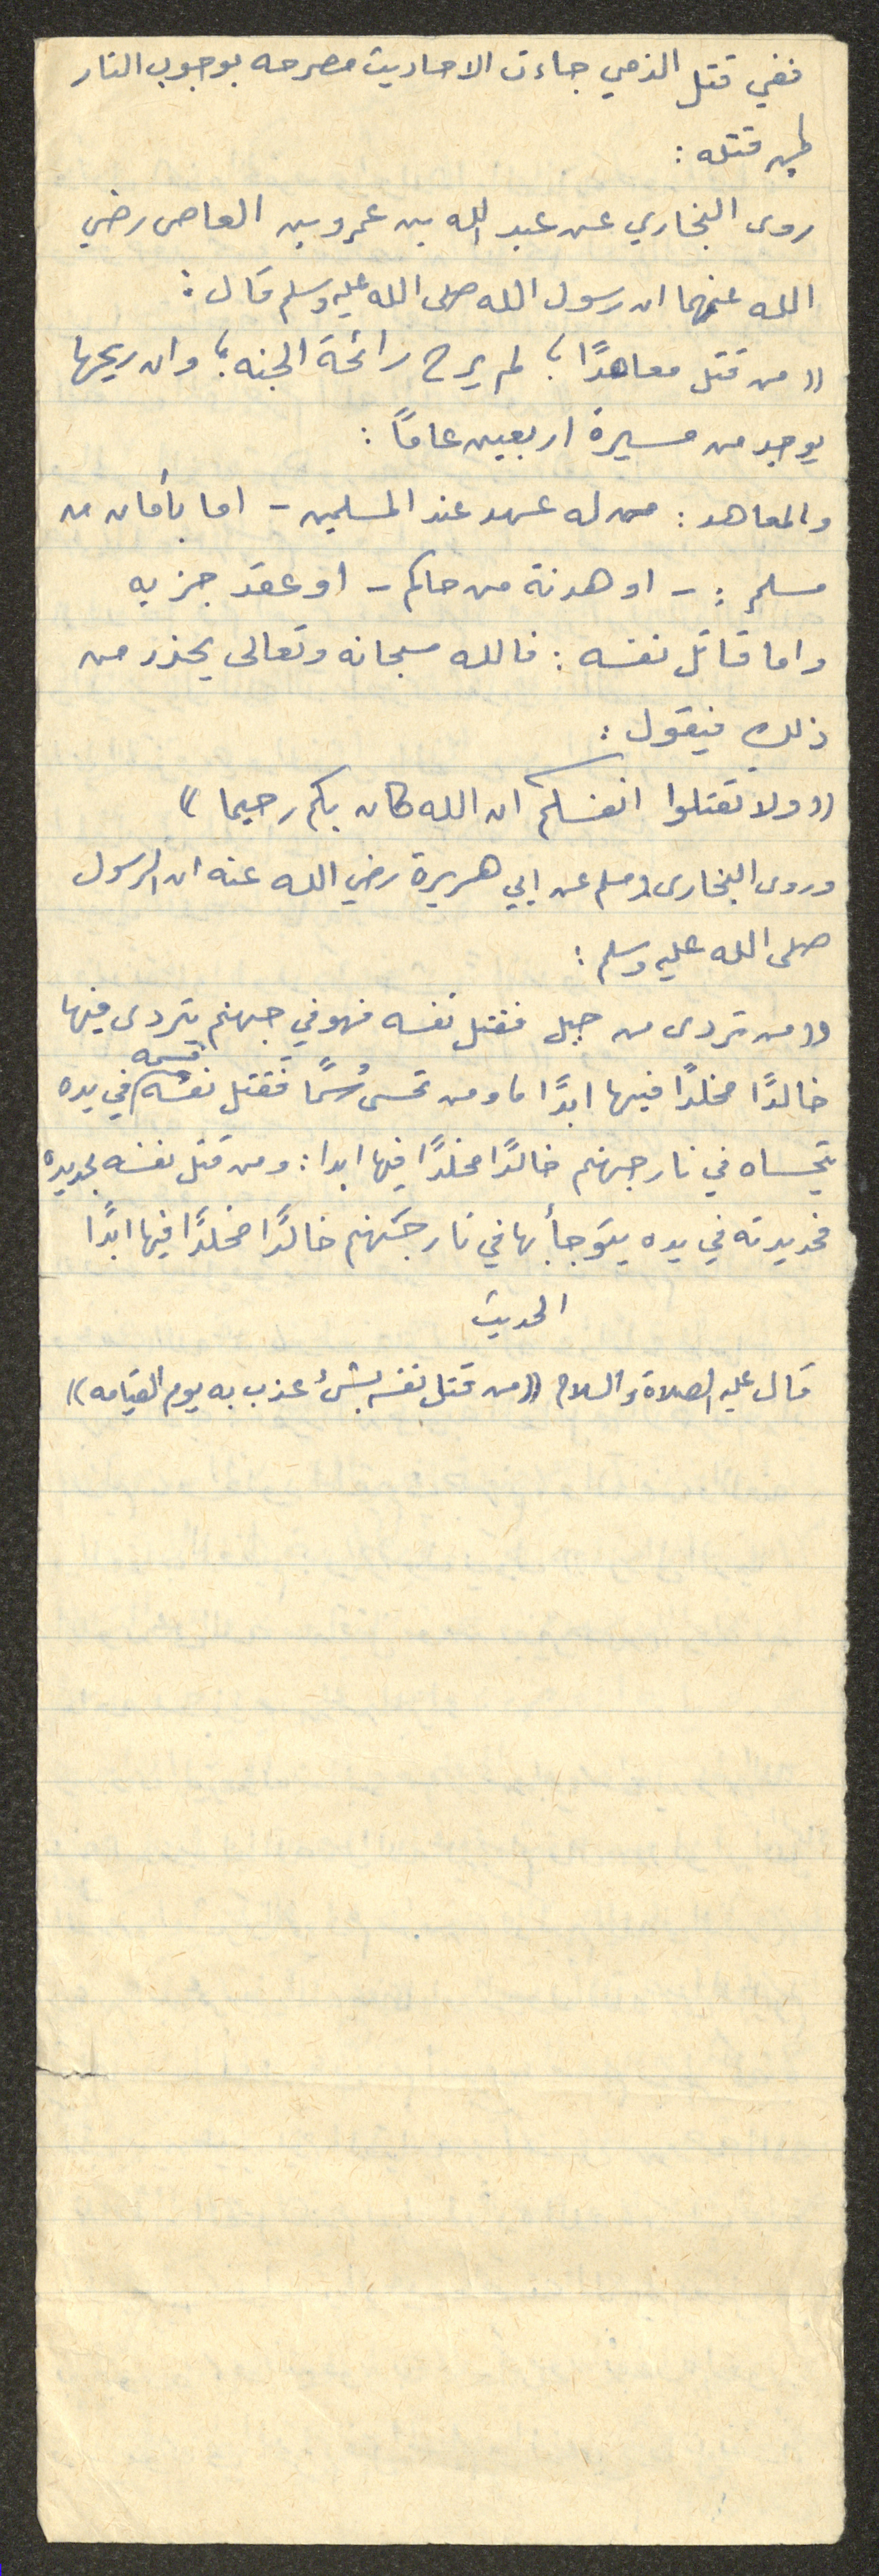 ففي قتل الذمي جاءت الاحاديث مصرحه بوجوب النار
لمن قتله :
روى البخاري عن عبد الله بن عمرو بن العاص رضي
الله عنهما ان رسول الله صلى الله عليه وسلم قال :
(( من قتل معاهدًا ؛ لم يرح رائحة الجنه ؛ وان ريحها
يوجد من مسيرة اربعين عامًا :
والمعاهد : من له عهد عند المسلمين - اما بأمان من
مسلم : - او هدنة من حاكم - او عقد جزيه
واما قاتل نفسه : فالله سبحانه وتعالى يحذر من
ذلك فيقول :
(( ولا تقتلوا انفسكم ان الله كان بكم رحيما ))
وروى البخارى ومسلم عن ابي هريرة رضي الله عنه ان الرسول
صلى الله عليه وسلم :
(( من تردى من جبل فقتل نفسه فهو في جهنم يتردى فيها
خالدًا مخلدًا فيها ابدًا ، ومن تحسى سُمًا فقتل نفسه فسمه في يده
يتحساه في نار جهنم خالدًا مخلدًا فيها ابدا : ومن قتل نفسه بحديده
فحديدته في يده يتوجأ بها في نار جهنم خالدًا مخلدًا فيها ابدًا
الحديث
قال عليه الصلاة والسلام (( من قتل نفسه بشئ عذب به يوم القيامه ))